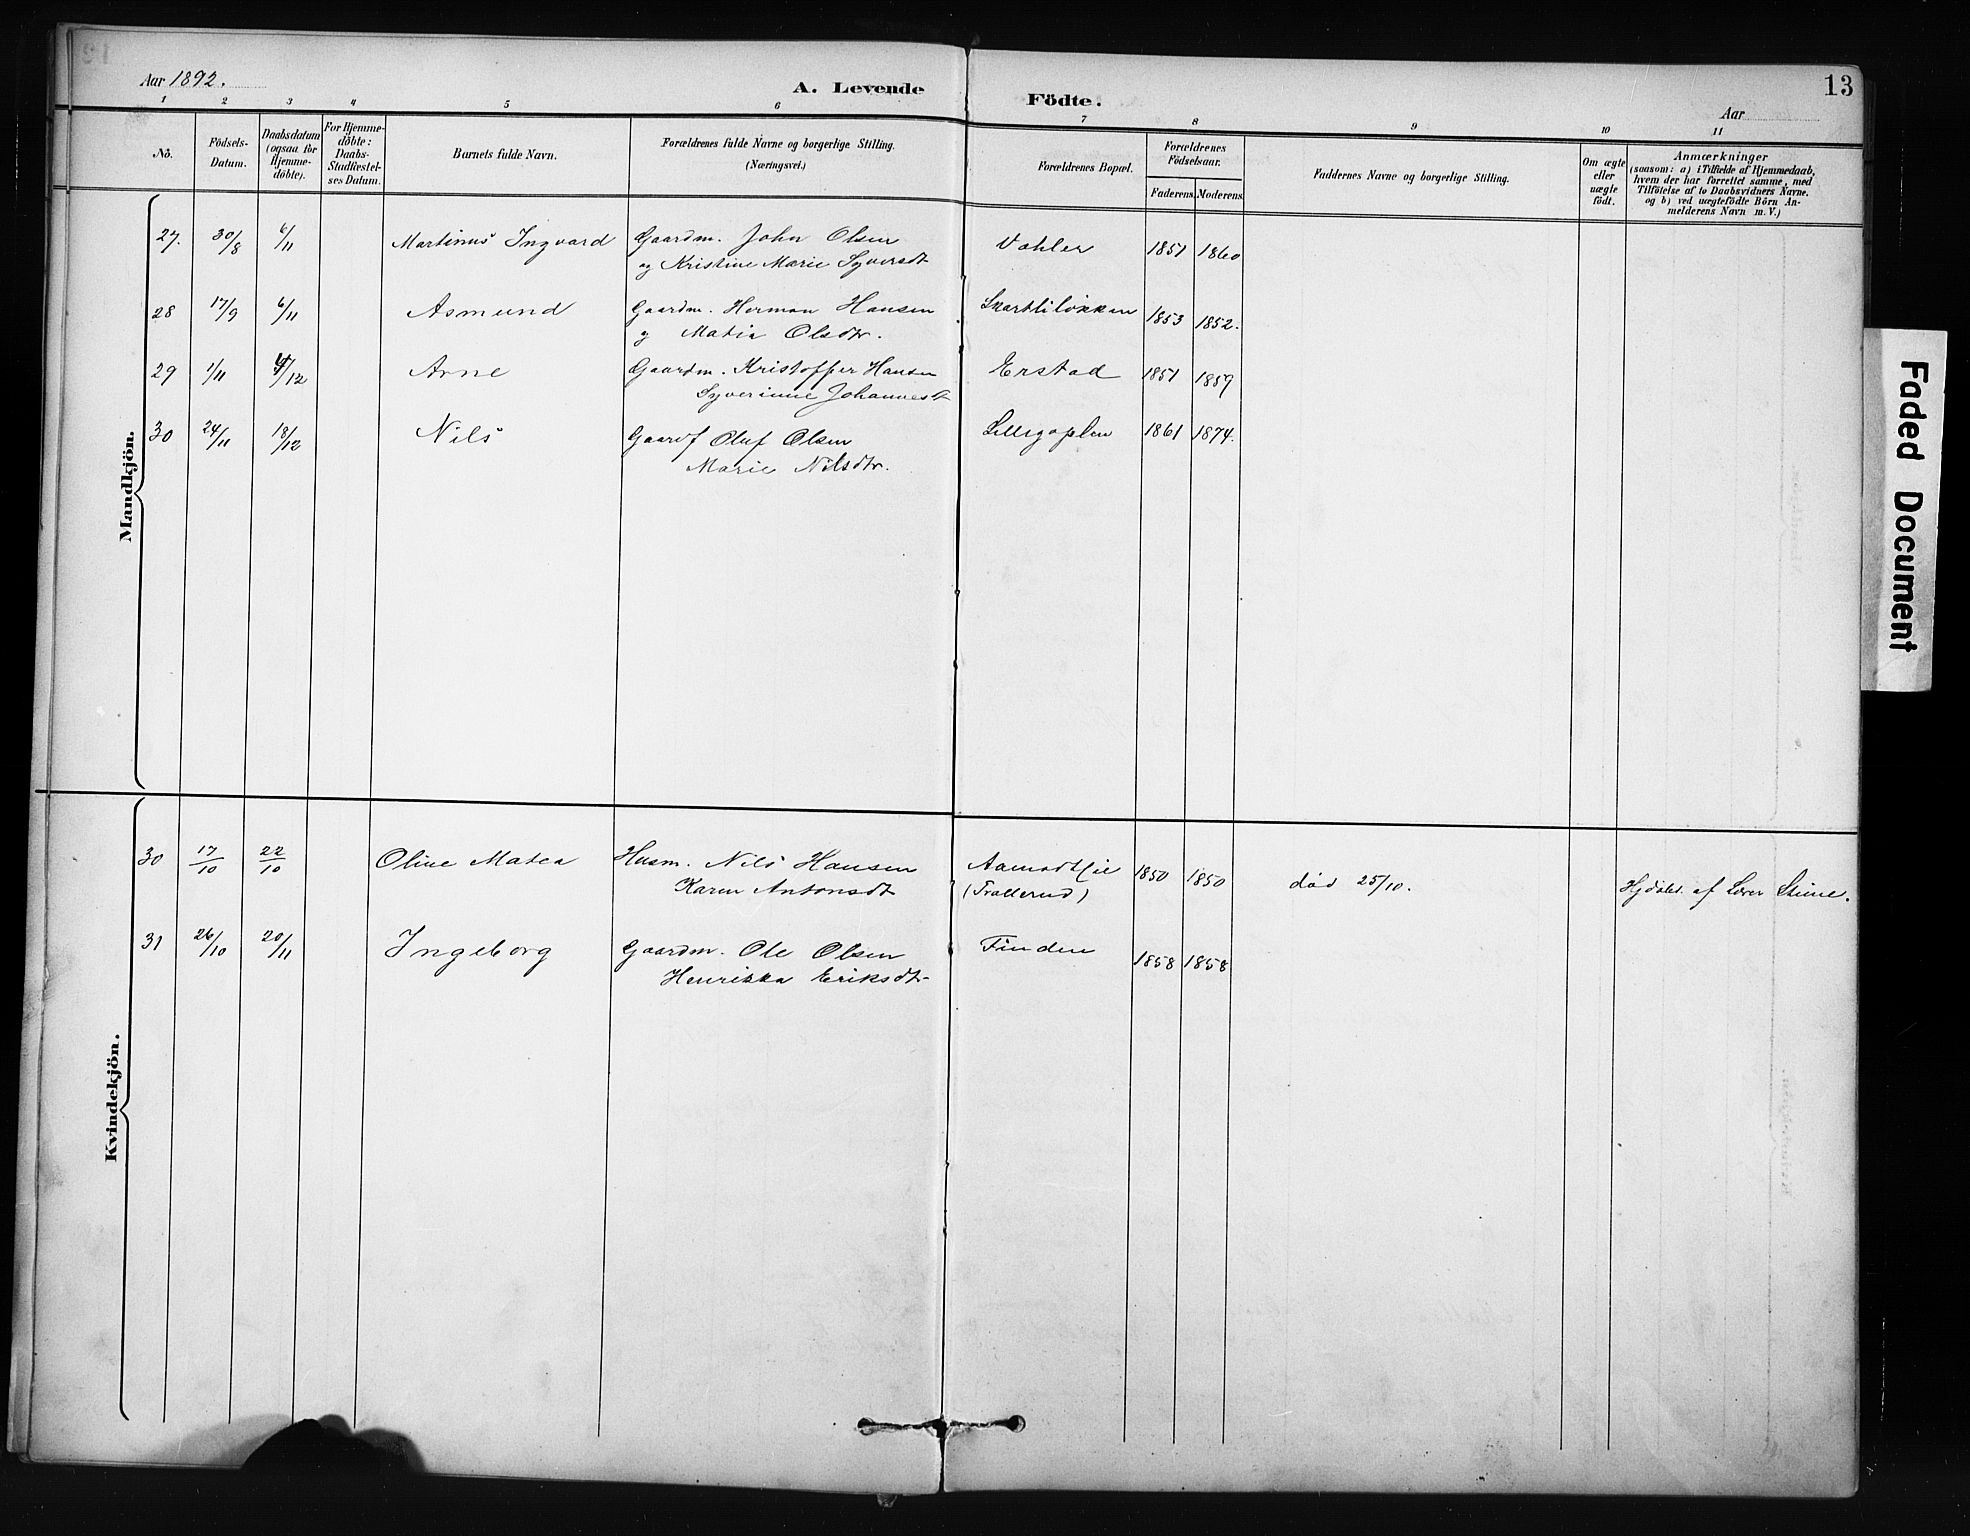 Aar 1892.
A. Levende Födte.
13
Aar
1 2 3 4 5 6 7 8 9 10 11
No. Födsels-Datum. Daabsdatum (ogsaa for Hjemmedöbte). For Hjemmedöbte: Daabs-Stadfestelses Datum. Barnets fulde Navn. Forældrenes fulde Navne og borgerlige Stilling. (Næringsvei.) Forældrenes Bopæl. Forældrenes Födselsaar. Faderens. Moderens. Faddernes Navne og borgerlige Stilling. Om ægte eller uægte födt. Anmærkninger
(saasom: a) i Tilfælde af Hjemmedaab,
hvem der har forrettet samme, med
Tilföielse af to Daabsvidners Navne.
og b) ved uægtefödte Börn An-
melderens Navn m. V.)
Mandkjön.
27. 30/8 6/11 Martinus Ingvard Gaardm. John Olsen Vahler 1851 1860
og Kristine Marie Syversdt
28 17/9 6/11 Asmund Gaardm. Herman Hansen 1853 1852.
og Matia Olsdtr.
29 1/11 4/12 Arne Gaardm. Kristoffer Hansen Erstad 1851 1859
Syverinne Johannesdt
30 24/11 18/12 Nils Oluf Olsen 1861 1874.
Marie Nilsdtr.
Kvindekjön.
30 17/10 22/10 Oline Matea Husm. Nils Hansen 1850 1850 död 25/10. Hjdöbt. af Lærer Stime.
Karen Antonsdt
31 26/10 20/11 Ingeborg Gaardm. Ole Olsen Finden 1858 1858
Henrikka Eriksdtr
Faded Document